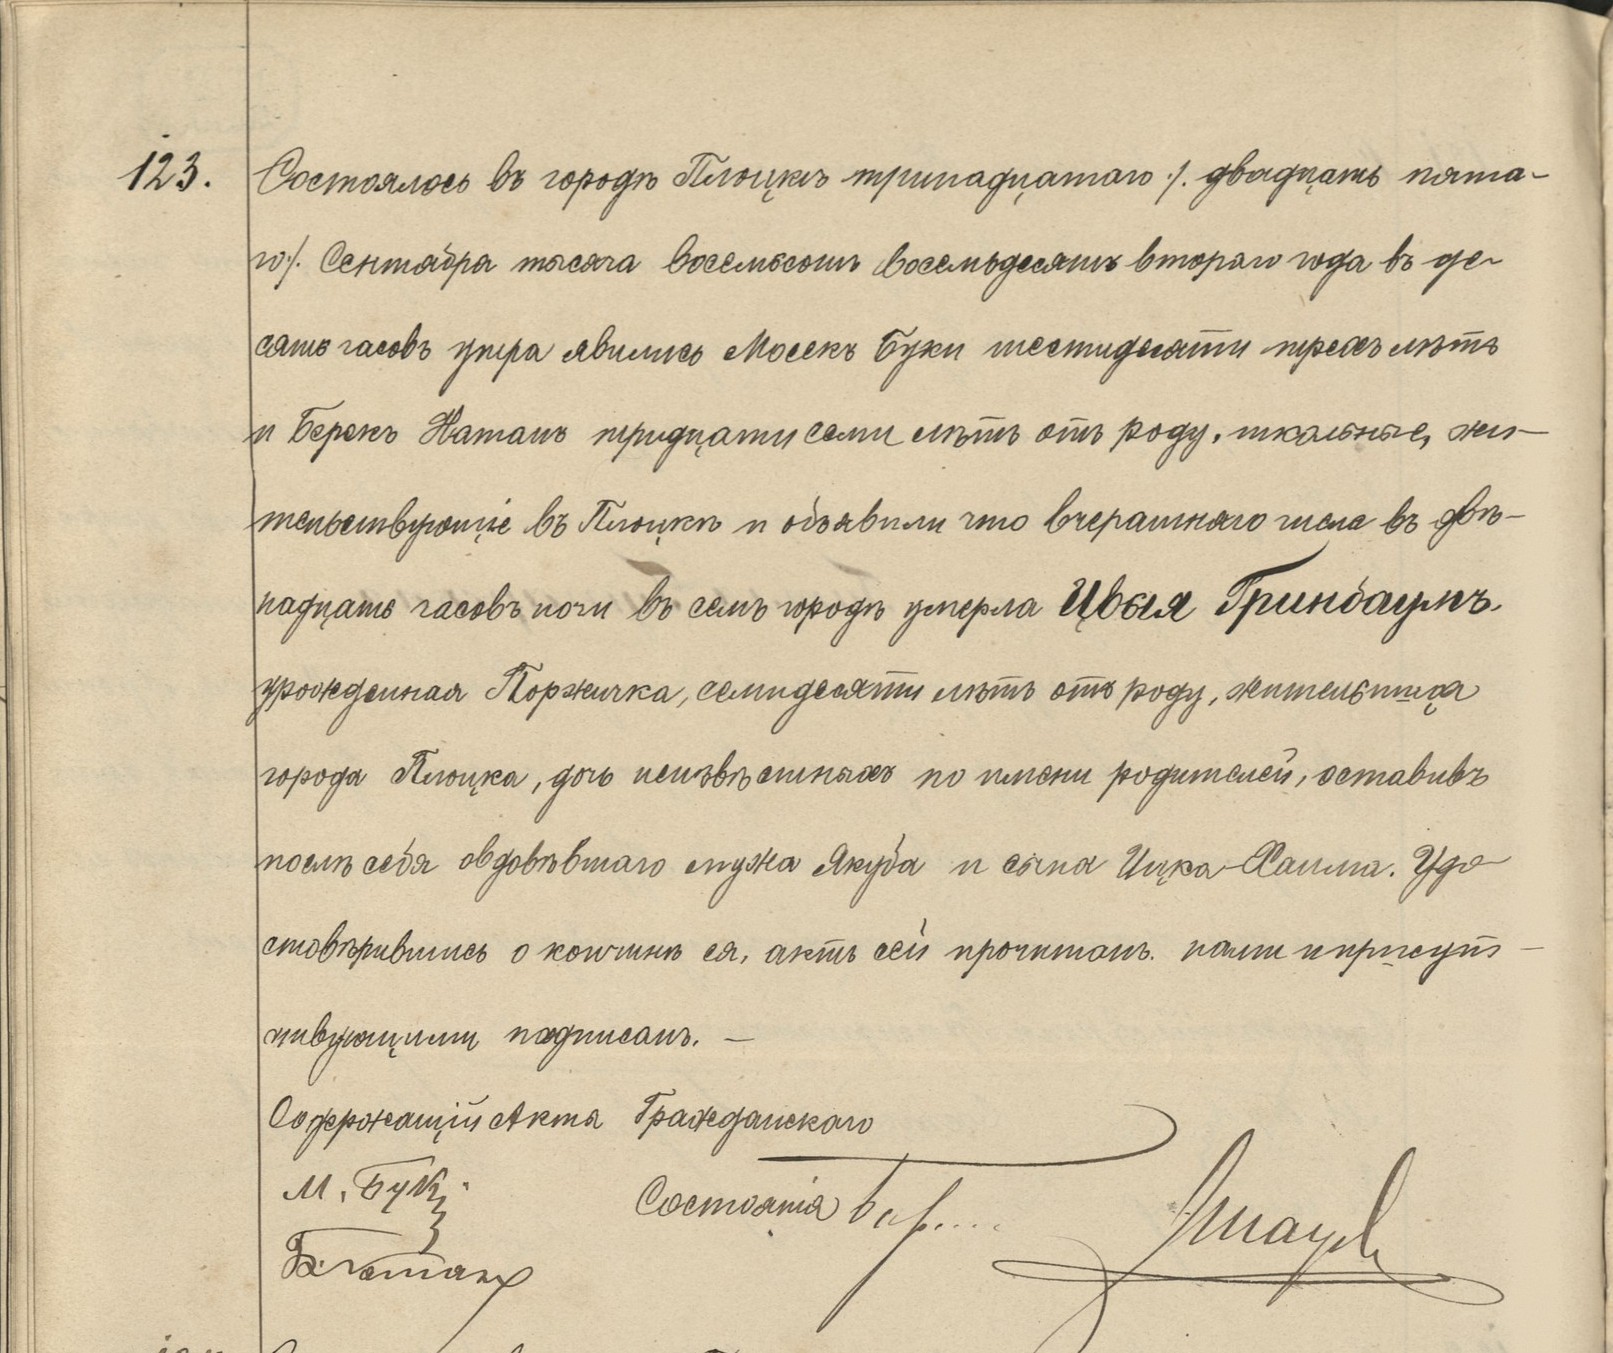 123. Состоялось въ городѣ Плоцкѣ тринадцатаго ./. двадцать пята-
го./. Сентября тысяча восемьсотъ восемьдесятъ втораго года въ де-
сять часовъ утра явились Мосекъ Буки шестидесяти трехъ лѣтъ
и Берекъ Натанъ тридцати семи лѣтъ отъ роду, школьные, жи-
тельствующіе въ Плоцкѣ и объявили что вчерашняго числа въ двѣ-
надцать часовъ ночи въ семъ городѣ умерла Цвыя Гринбаумъ,
урожденная Поржичка, семидесяти лѣтъ отъ роду, жительница
города Плоцка, дочь неизвѣстныхъ по имени родителей, оставивъ
послѣ себя овдовѣвшаго мужа Якуба и сына Ицка-Хаима. Удо-
стовѣрившись о кончинѣ ея, актъ сей прочитанъ нами и присут-
ствующими подписанъ. —
Содержащій Акта Гражданскаго
М. Буки
Состоянія
Б. Натан